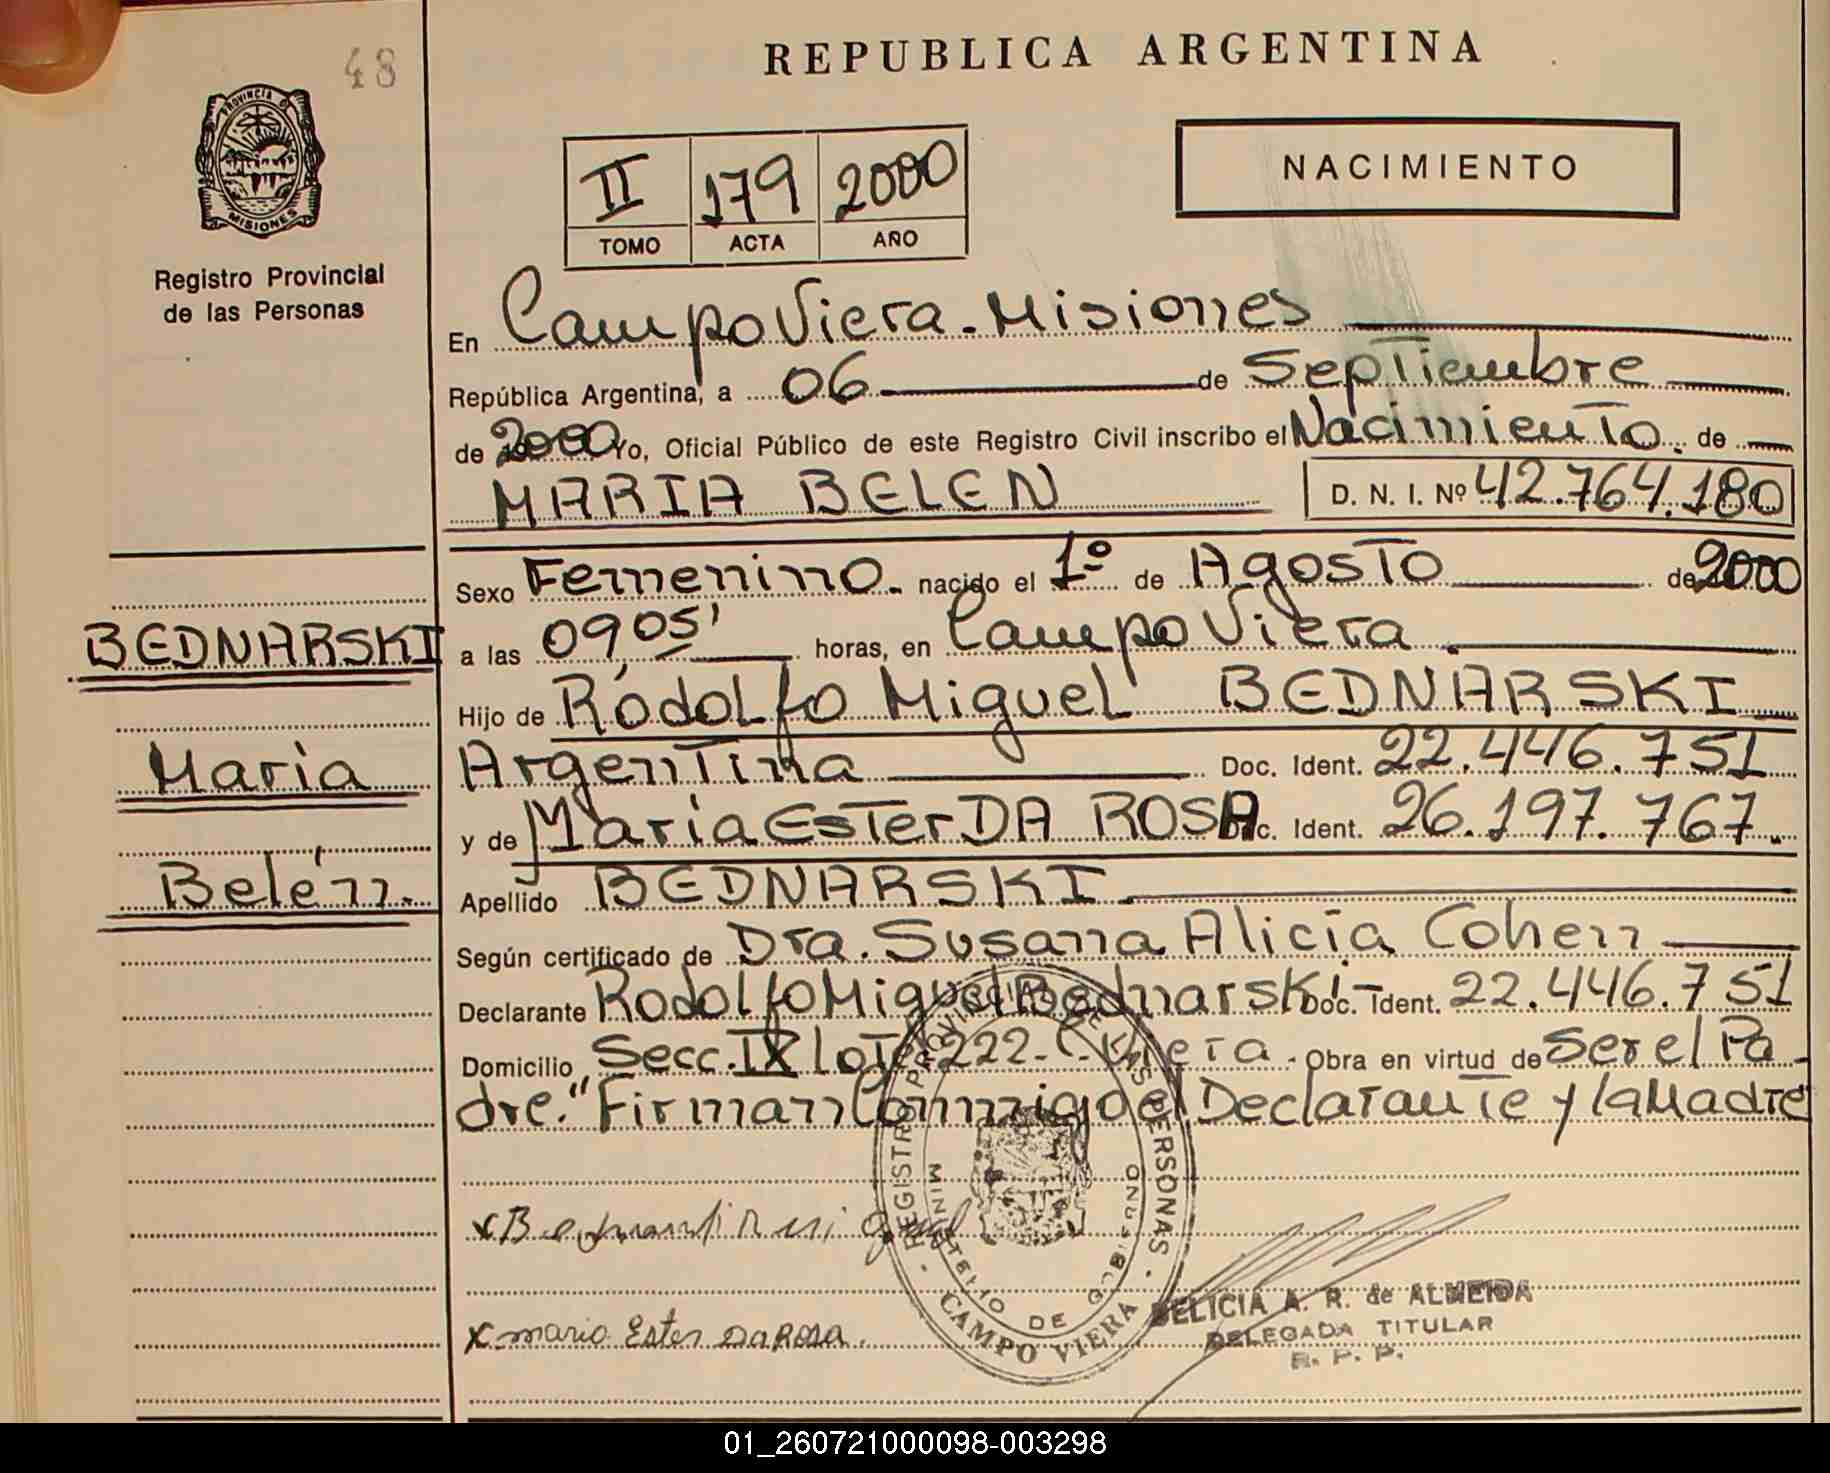 48
REPUBLICA ARGENTINA
PROVINCIA D
MISIONES
Registro Provincial
de las Personas
II 179 2000
TOMO ACTA AÑO
NACIMIENTO
En Campo Viera - Misiones
República Argentina, a 06 de Septiembre
de 2000 Yo, Oficial Público de este Registro Civil inscribo el Nacimiento de
MARIA BELEN D. N. I. Nº 42.764.180
Sexo Femenino. nacido el 1º de Agosto de 2000
a las 09,05' horas, en Campo Viera
Hijo de Rodolfo Miguel BEDNARSKI
Argentina Doc. Ident. 22.446.751
y de Maria Ester DA ROSA Doc. Ident. 26.197.767.
Apellido BEDNARSKI
Según certificado de Dra. Susana Alicia Cohen
Declarante Rodolfo Miguel Bednarski Doc. Ident. 22.446.751
Domicilio Secc. IX lote 222 - C. Viera - Obra en virtud de Ser el Pa-
dre. "Firman Conmigo el Declarante y la Madre"
BEDNARSKI
Maria
Belén.
REGISTRO PROVINCIAL DE LAS PERSONAS
MINISTERIO DE GOBIERNO
CAMPO VIERA
x maria Ester DaRosa.
DELICIA A. R. de ALMEIDA
DELEGADA TITULAR
R. P. P.
01_260721000098-003298